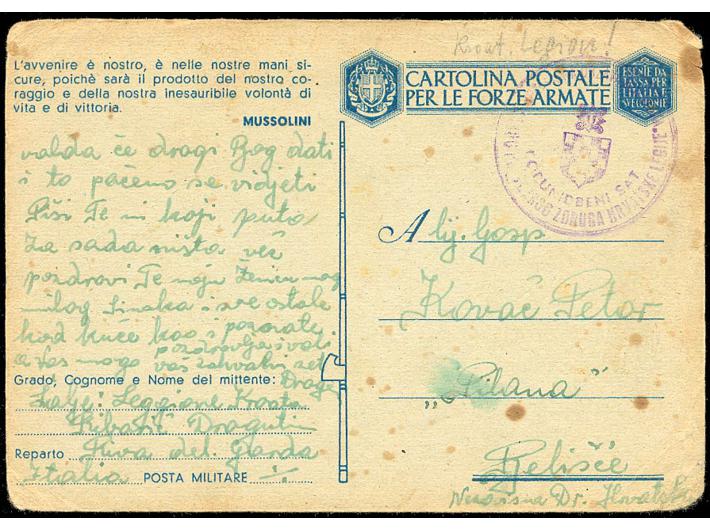 Kroat. Legion!
L'avvenire è nostro, è nelle nostre mani si-
cure, poichè sarà il prodotto del nostro co-
raggio e della nostra inesauribile volontà di
vita e di vittoria.
MUSSOLINI
valda če dragi Bog dati
i to pačemo se vidjeti
Piši Te mi koji puta
Za sada ništa već
pozdravi Te moju Ženicu mog
milog Sinaka i sve ostale
kod kuče kao i
pozdravlja i vas
a vas mogo vaš zahvalni zet
Drago
Grado, Cognome e Nome del mittente:
Šalje: Leggione Kroata
Ribarić Dragutin
Reparto Riva del Garda
Italia POSTA MILITARE
CARTOLINA POSTALE
PER LE FORZE ARMATE
ESENTE DA
TASSA PER
L'ITALIA E
SVE COLONIE
OPKRBENI SAT
ZDRUGA HRVATSKE LEGIJE
A lj. Gosp
Kovač Petar
"Pilana"
Belišće
Nezavisna Dr. Hrvatska